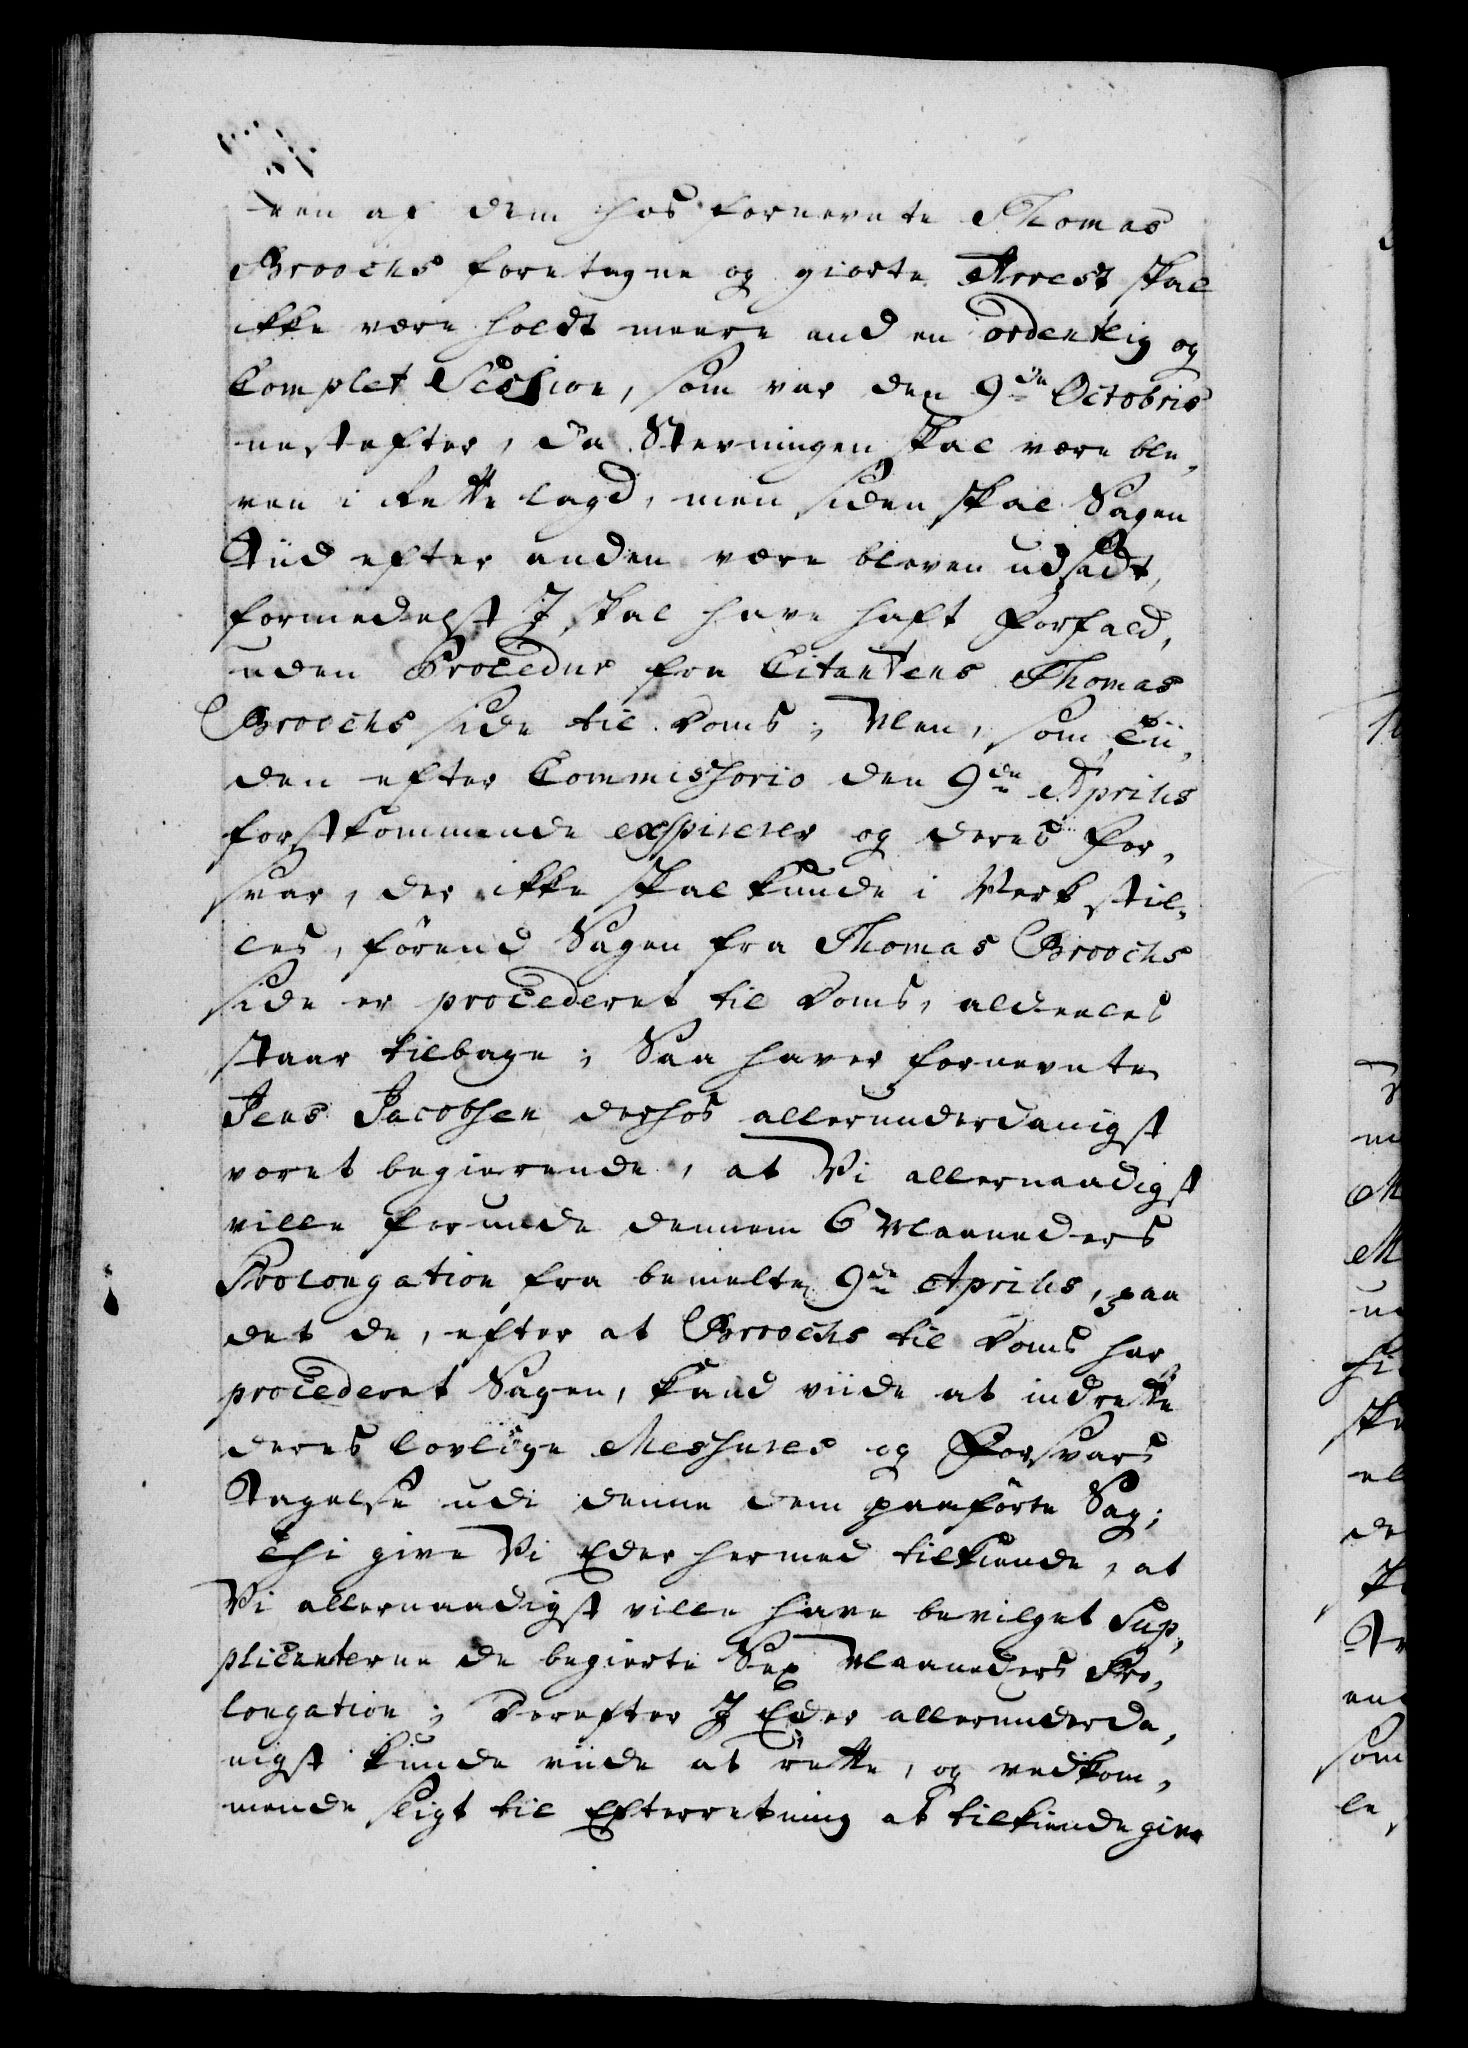 ven af dem hos fornevnte Thomas
Broochs foretagne og giorte Arrest skal
ikke være holdt meere end en ordentlig og
Complet Session, som var den 9de Octobris
nestefter, da Stevningen skal være ble,
ven i Rette lagd, men siden skal Sagen
Tiid efter anden være bleven udsadt,
formedelst I skal have haft Forfald,
uden Procedur fra Citantens Thomas
Broochs side til Doms; Men, som Tii,
den efter Commissorio den 9de Aprilis
førstkommende exspirerer og deres For,
svar, der ikke skal kunde i Verk stil,
les, førend Sagen fra Thomas Broochs
side er procederet til Doms, aldeeles
staar tilbage; Saa haver fornevnte
Jens Jacobsen derhos allerunderdanigst
været begierende, at Vi allernaadigst
ville forunde dennem 6 Maaneders
Prolongation fra bemelte 9de Aprilis, paa
det de, efter at Broochs til Doms har
procederet Sagen, kand viide at indrette
deres lovlige Messures og Forsvars
Tagelse udi denne dem paaførte Sag;
Thi give Vi Eder hermed tilkiende, at
Vi allernaadigst ville have bevilget Sup,
plicanterne de begierte Sex Maaneders Pro,
longation; Derefter I Eder allerunderda,
nigst kunde viide at rette, og vedkom,
mende sligt til Efterretning at tilkiende give